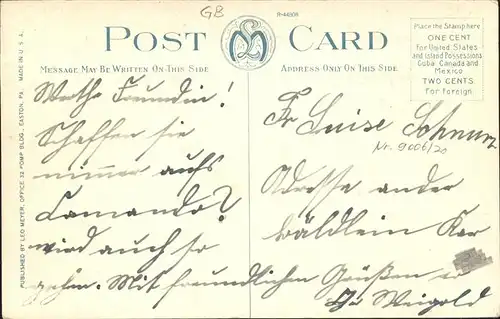 GB
R-44808
POST CARD
MESSAGE MAY BE WRITTEN ON THIS SIDE
ADDRESS ONLY ON THIS SIDE
Place the Stamp here
ONE CENT
for United States
and Island Possessions
Cuba Canada and
Mexico
TWO CENTS
For Foreign
PUBLISHED BY LEO MEYER, OFFICE 32 POMP BLDG., EASTON, PA. MADE IN U.S.A.
Werthe Freundin!
Schaffen sie
nimmer aufs
Camando?
wird auch so
gehn. Mit freundlichen Grüßen
Weigold
Fr Luise Schnurr
Nr. 9006/20
Adresse ander
Wäldlein